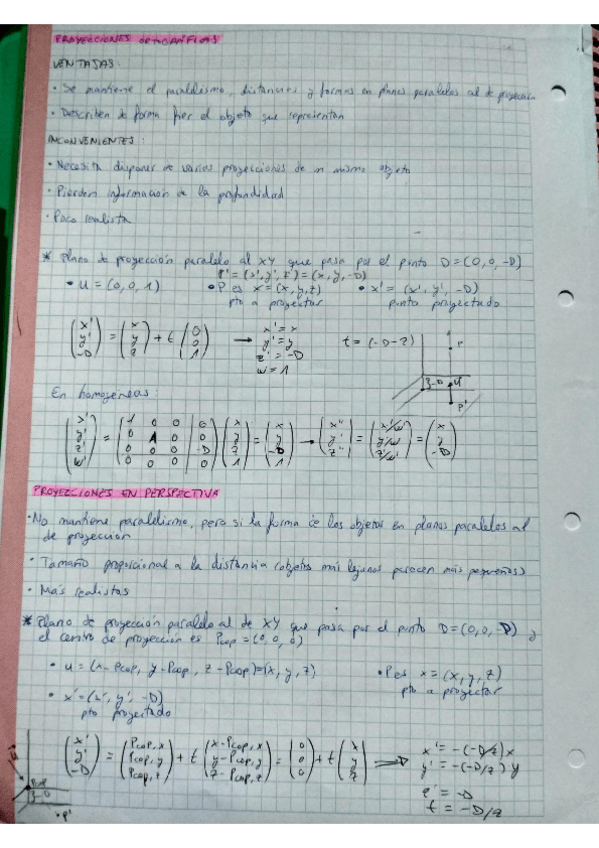 PROYECCIONES ORTOGRÁFICAS
VENTAJAS:
• Se mantiene el paralelismo, distancias y formas en planos paralelos al de proyección
• Describen de forma fiel el objeto que representan
INCONVENIENTES:
• Necesita disponer de varias proyecciones de un mismo objeto
• Pierden información de la profundidad
• Poco realista
* Plano de proyección paralelo al XY que pasa por el punto D=(0,0,-D)
P'=(x',y',z')=(x,y,-D)
• u=(0,0,1) • P es x=(x,y,z) • x'=(x',y',-D)
pto a proyectar punto proyectado
(x' y' -D) = (x y z) + t (0 0 1) → x'=x y'=y z'=-D w=1 t=(-D-z)
P
3-D u
P'
En homogéneas:
(x' y' z' w') = (1 0 0 0 0 1 0 0 0 0 0 -D 0 0 0 0) (x y z 1) = (x y -D 1) → (x" y" z") = (x'/w' y'/w' z'/w') = (x y -D)
PROYECCIONES EN PERSPECTIVA
• No mantiene paralelismo, pero si la forma de los objetos en planos paralelos al
de proyección
• Tamaño proporcional a la distancia (objetos más lejanos parecen más pequeños)
• Más realistas
* Plano de proyección paralelo al de XY que pasa por el punto D=(0,0,-D) y
el centro de proyección es Pcop=(0,0,0)
• u=(x-Pcop, y-Pcop, z-Pcop)=(x,y,z) • P es x=(x,y,z)
pto a proyectar
• x'=(x',y',-D)
pto proyectado
(x' y' -D) = (Pcop,x Pcop,y Pcop,z) + t (x-Pcop,x y-Pcop,y z-Pcop,z) = (0 0 0) + t (x y z) → x'=-(-D/z)x
y'=-(-D/z)y
z'=-D
t=-D/z
Pcop
3-D
P'